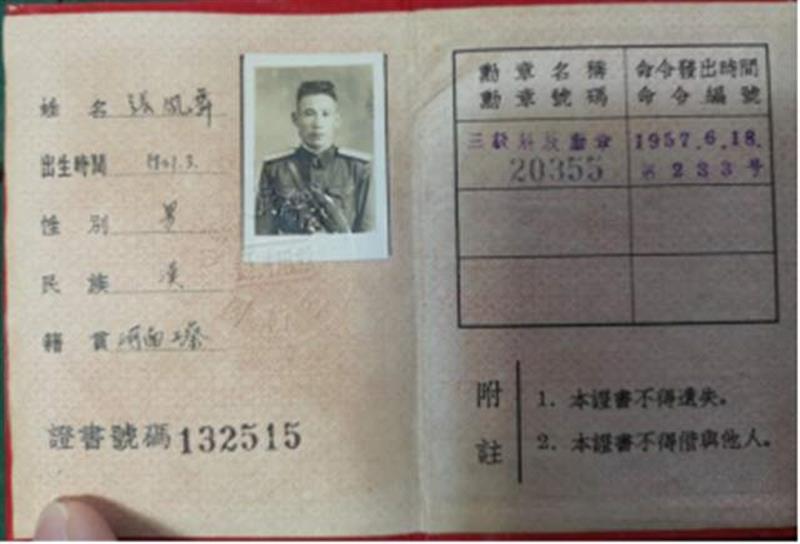 姓名 張鳳
出生時間
性別 男
民族 漢
籍貫 河南
證書號碼 132515
勳章名稱
勳章號碼
命令發出時間
命令編號
三級解放勳章
20355
1957.6.18.
233号
附註
1. 本證書不得遺失。
2. 本證書不得借與他人。